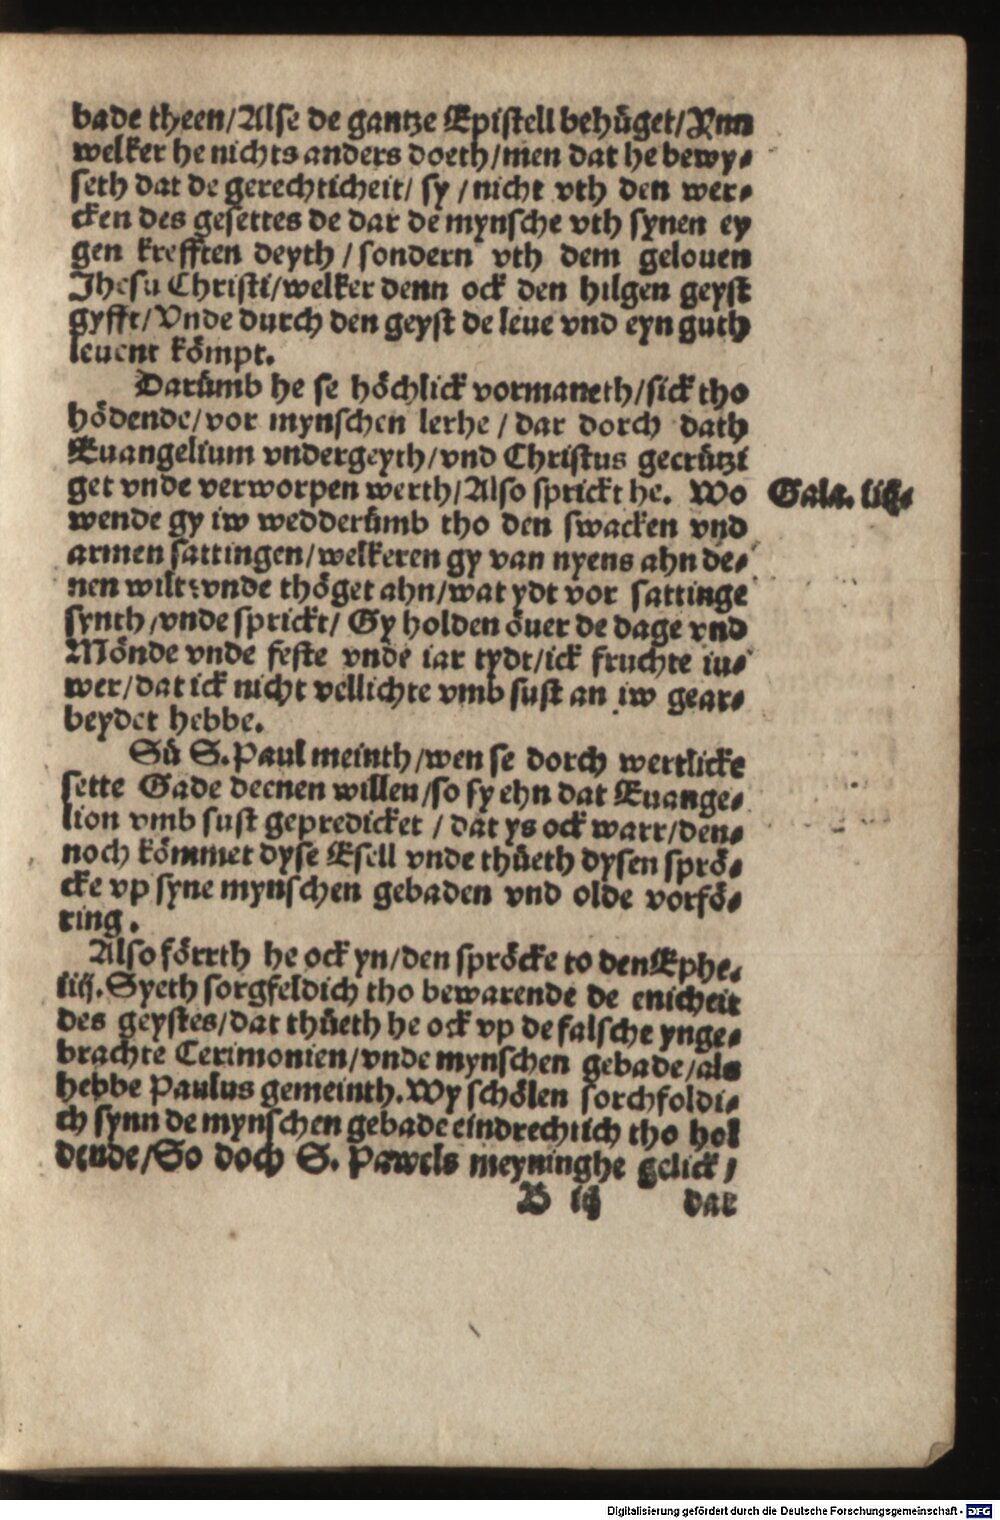 bade theen/Alse de gantze Epistell behüget/Ynn
welker he nichts anders doeth/men dat he bewy⸗
seth dat de gerechticheit/ sy /nicht vth den wer⸗
cken des gesettes de dar de mynsche vth synen ey
gen krefften deyth /sondern vth dem gelouen
Jhesu Christi/welker denn ock den hilgen geyst
gyfft/Vnde durch den geyst de leue vnd eyn guth
leuent kömpt.
Darümb he se höchlick vormaneth/sick tho
hödende/vor mynschen lerhe /dar dorch dath
Euangelium vndergeyth/vnd Christus gecrützi
get vnde verworpen werth/Also sprickt he. Wo
Gala. iiij.
wende gy iw wedderümb tho den swacken vnd
armen sattingen/welkeren gy van nyens ahn de⸗
nen wilt?vnde thöget ahn/wat ydt vor sattinge
synth/vnde sprickt/ Gy holden öuer de dage vnd
Mönde vnde feste vnde iar tydt/ick fruchte iu⸗
wer/dat ick nicht vellichte vmb sust an iw gear⸗
beydet hebbe.
Sü S.Paul meinth/wen se dorch wertlicke
sette Gade deenen willen/so sy ehn dat Euange⸗
lion vmb sust gepredicket /dat ys ock warr/den⸗
noch kömmet dyse Esell vnde thüeth dysen sprö⸗
cke vp syne mynschen gebaden vnd olde vorfö⸗
ring.
Also förrth he ock yn/den spröcke to den Ephe.
iiij.Syeth sorgfeldich tho bewarende de enicheit
des geystes/dat thüeth he ock vp de falsche ynge⸗
brachte Cerimonien/vnde mynschen gebade/als
hebbe Paulus gemeinth.Wy schölen sorchfoldi⸗
ch synn de mynschen gebade eindrechtich tho hol
dende/So doch S. Pawels meyninghe gelick/
B iij dar
Digitalisierung gefördert durch die Deutsche Forschungsgemeinschaft - DFG